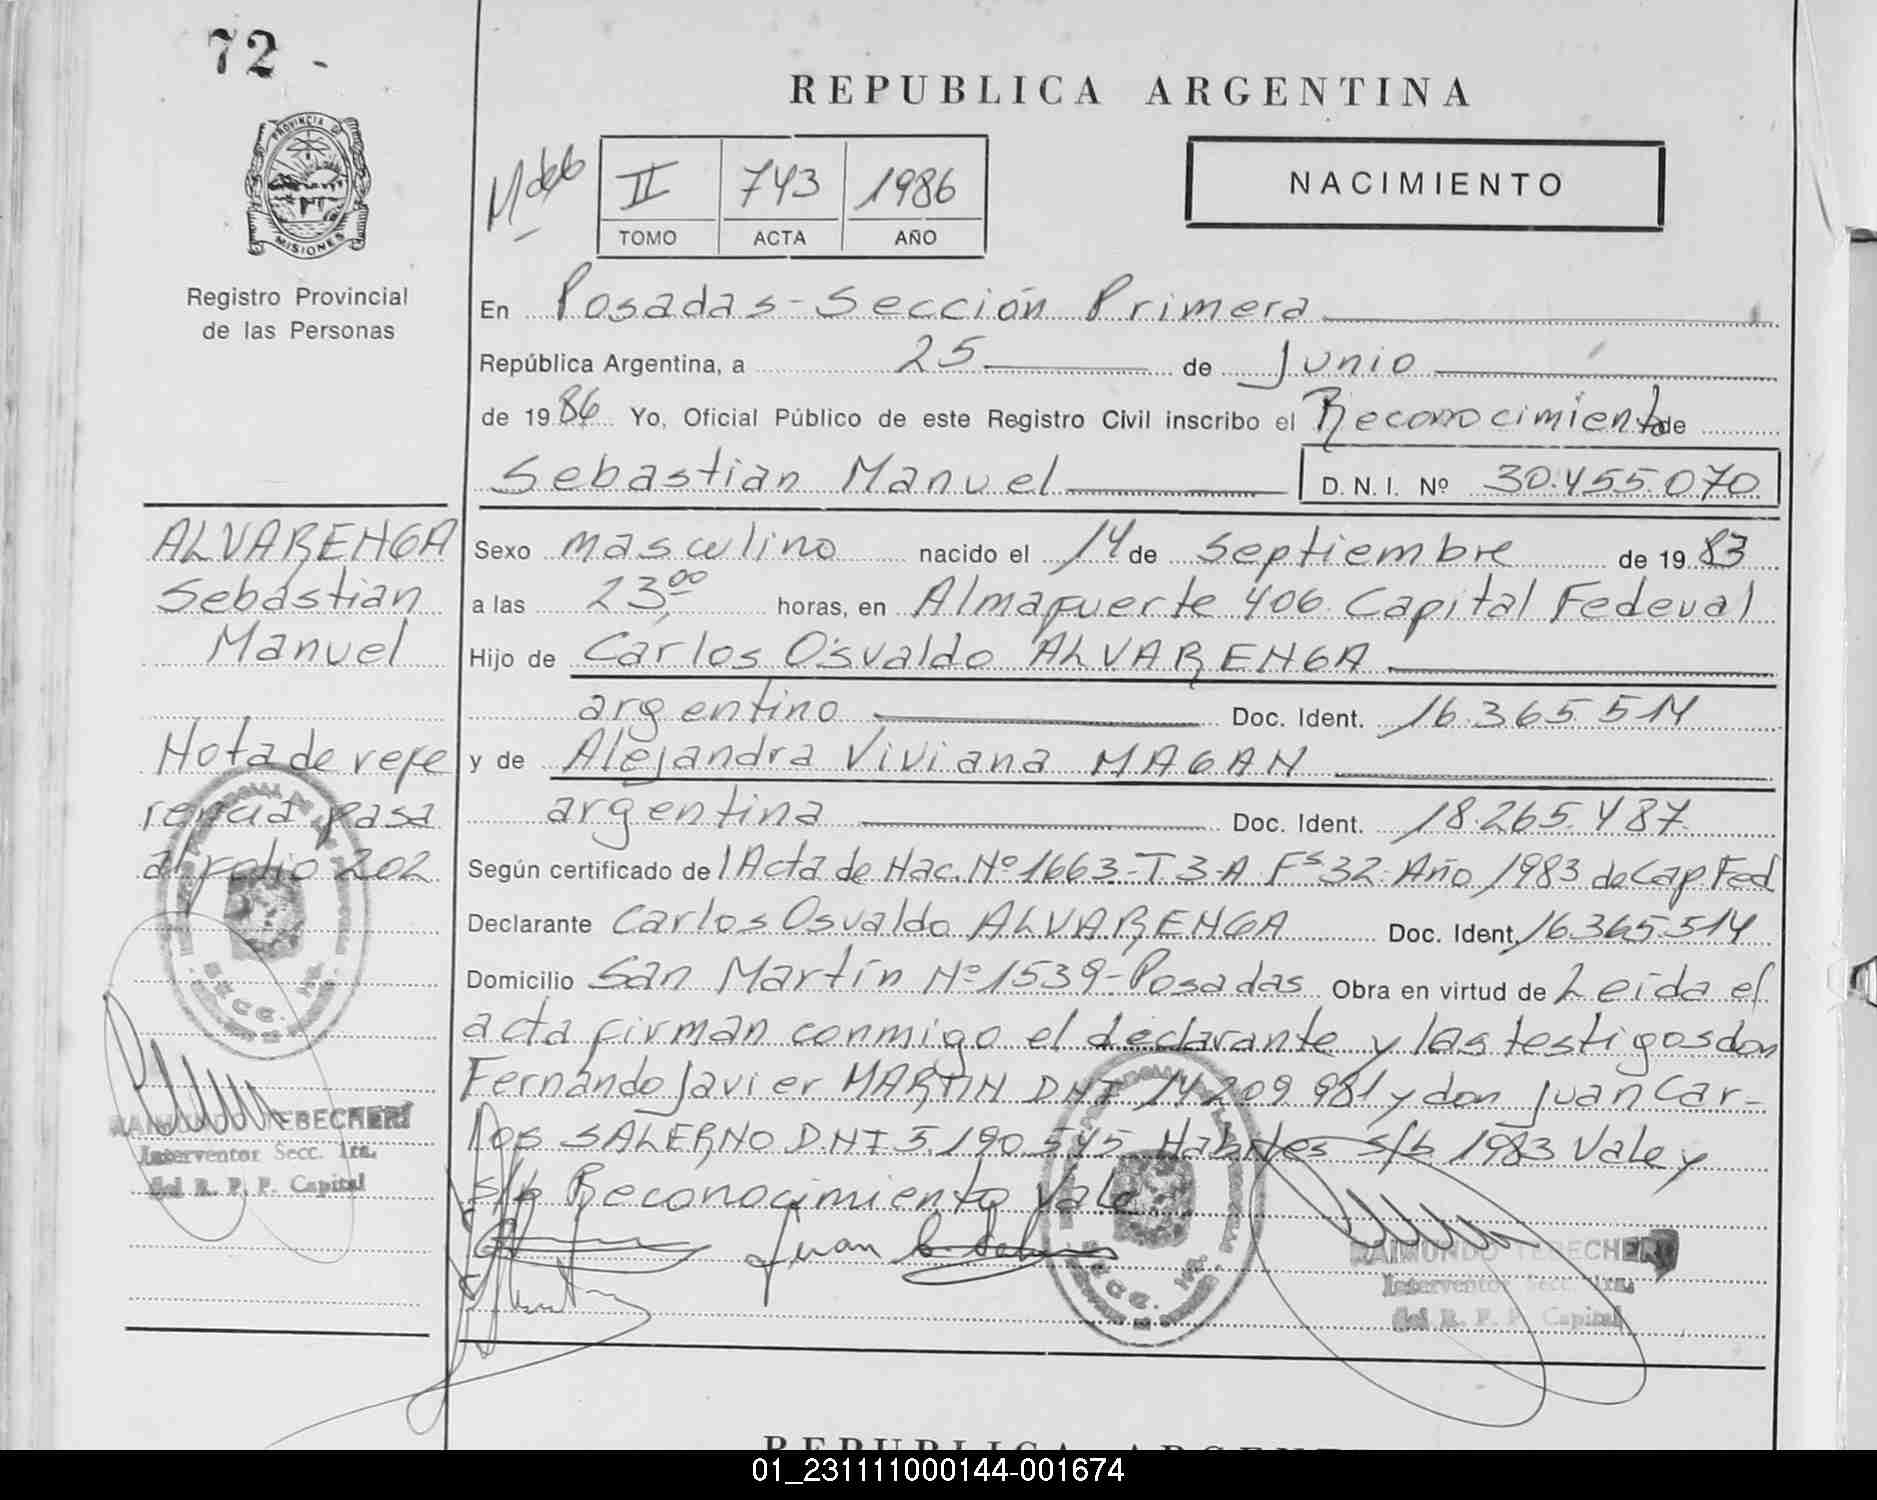 72 -
REPUBLICA ARGENTINA
PROVINCIA DE
MISIONES
II 743 1986
TOMO ACTA AÑO
NACIMIENTO
Registro Provincial
de las Personas
En Posadas - Sección Primera
República Argentina, a 25 de Junio
de 1986 Yo, Oficial Público de este Registro Civil inscribo el Reconocimiento de
Sebastian Manuel D.N.I. Nº 30.455.070
ALVARENGA
Sebastian
Manuel
Sexo masculino nacido el 14 de Septiembre de 1983
a las 23,00 horas, en Almafuerte 406. Capital Federal
Hijo de Carlos Osvaldo ALVARENGA
argentino Doc. Ident. 16.365.514
y de Alejandra Viviana MAGAN
argentina Doc. Ident. 18.265.487
Nota de refe
rencia pasa
al folio 202
Según certificado de 1 Acta de Nac. Nº 1663-T 3-A Fs 32. Año 1983 de Cap. Fed
Declarante Carlos Osvaldo ALVARENGA Doc. Ident. 16.365.514
Domicilio San Martín Nº 1539-Posadas Obra en virtud de Leida el
acta firman conmigo el declarante y los testigos don
Fernando Javier MARTIN DNI 14.209.981 y don Juan Car-
los SALERNO D.N.I 5.190.545 Habiles s/b 1983 Vale y
s/b Reconocimiento Vale
Juan C.
RAIMUNDO TEBECHERI
Interventor Secc. 1ra.
del R. P. P. Capital
RAIMUNDO TEBECHERI
Interventor Secc. 1ra.
del R. P. P. Capital
REPUBLICA ARGENTINA
01_231111000144-001674